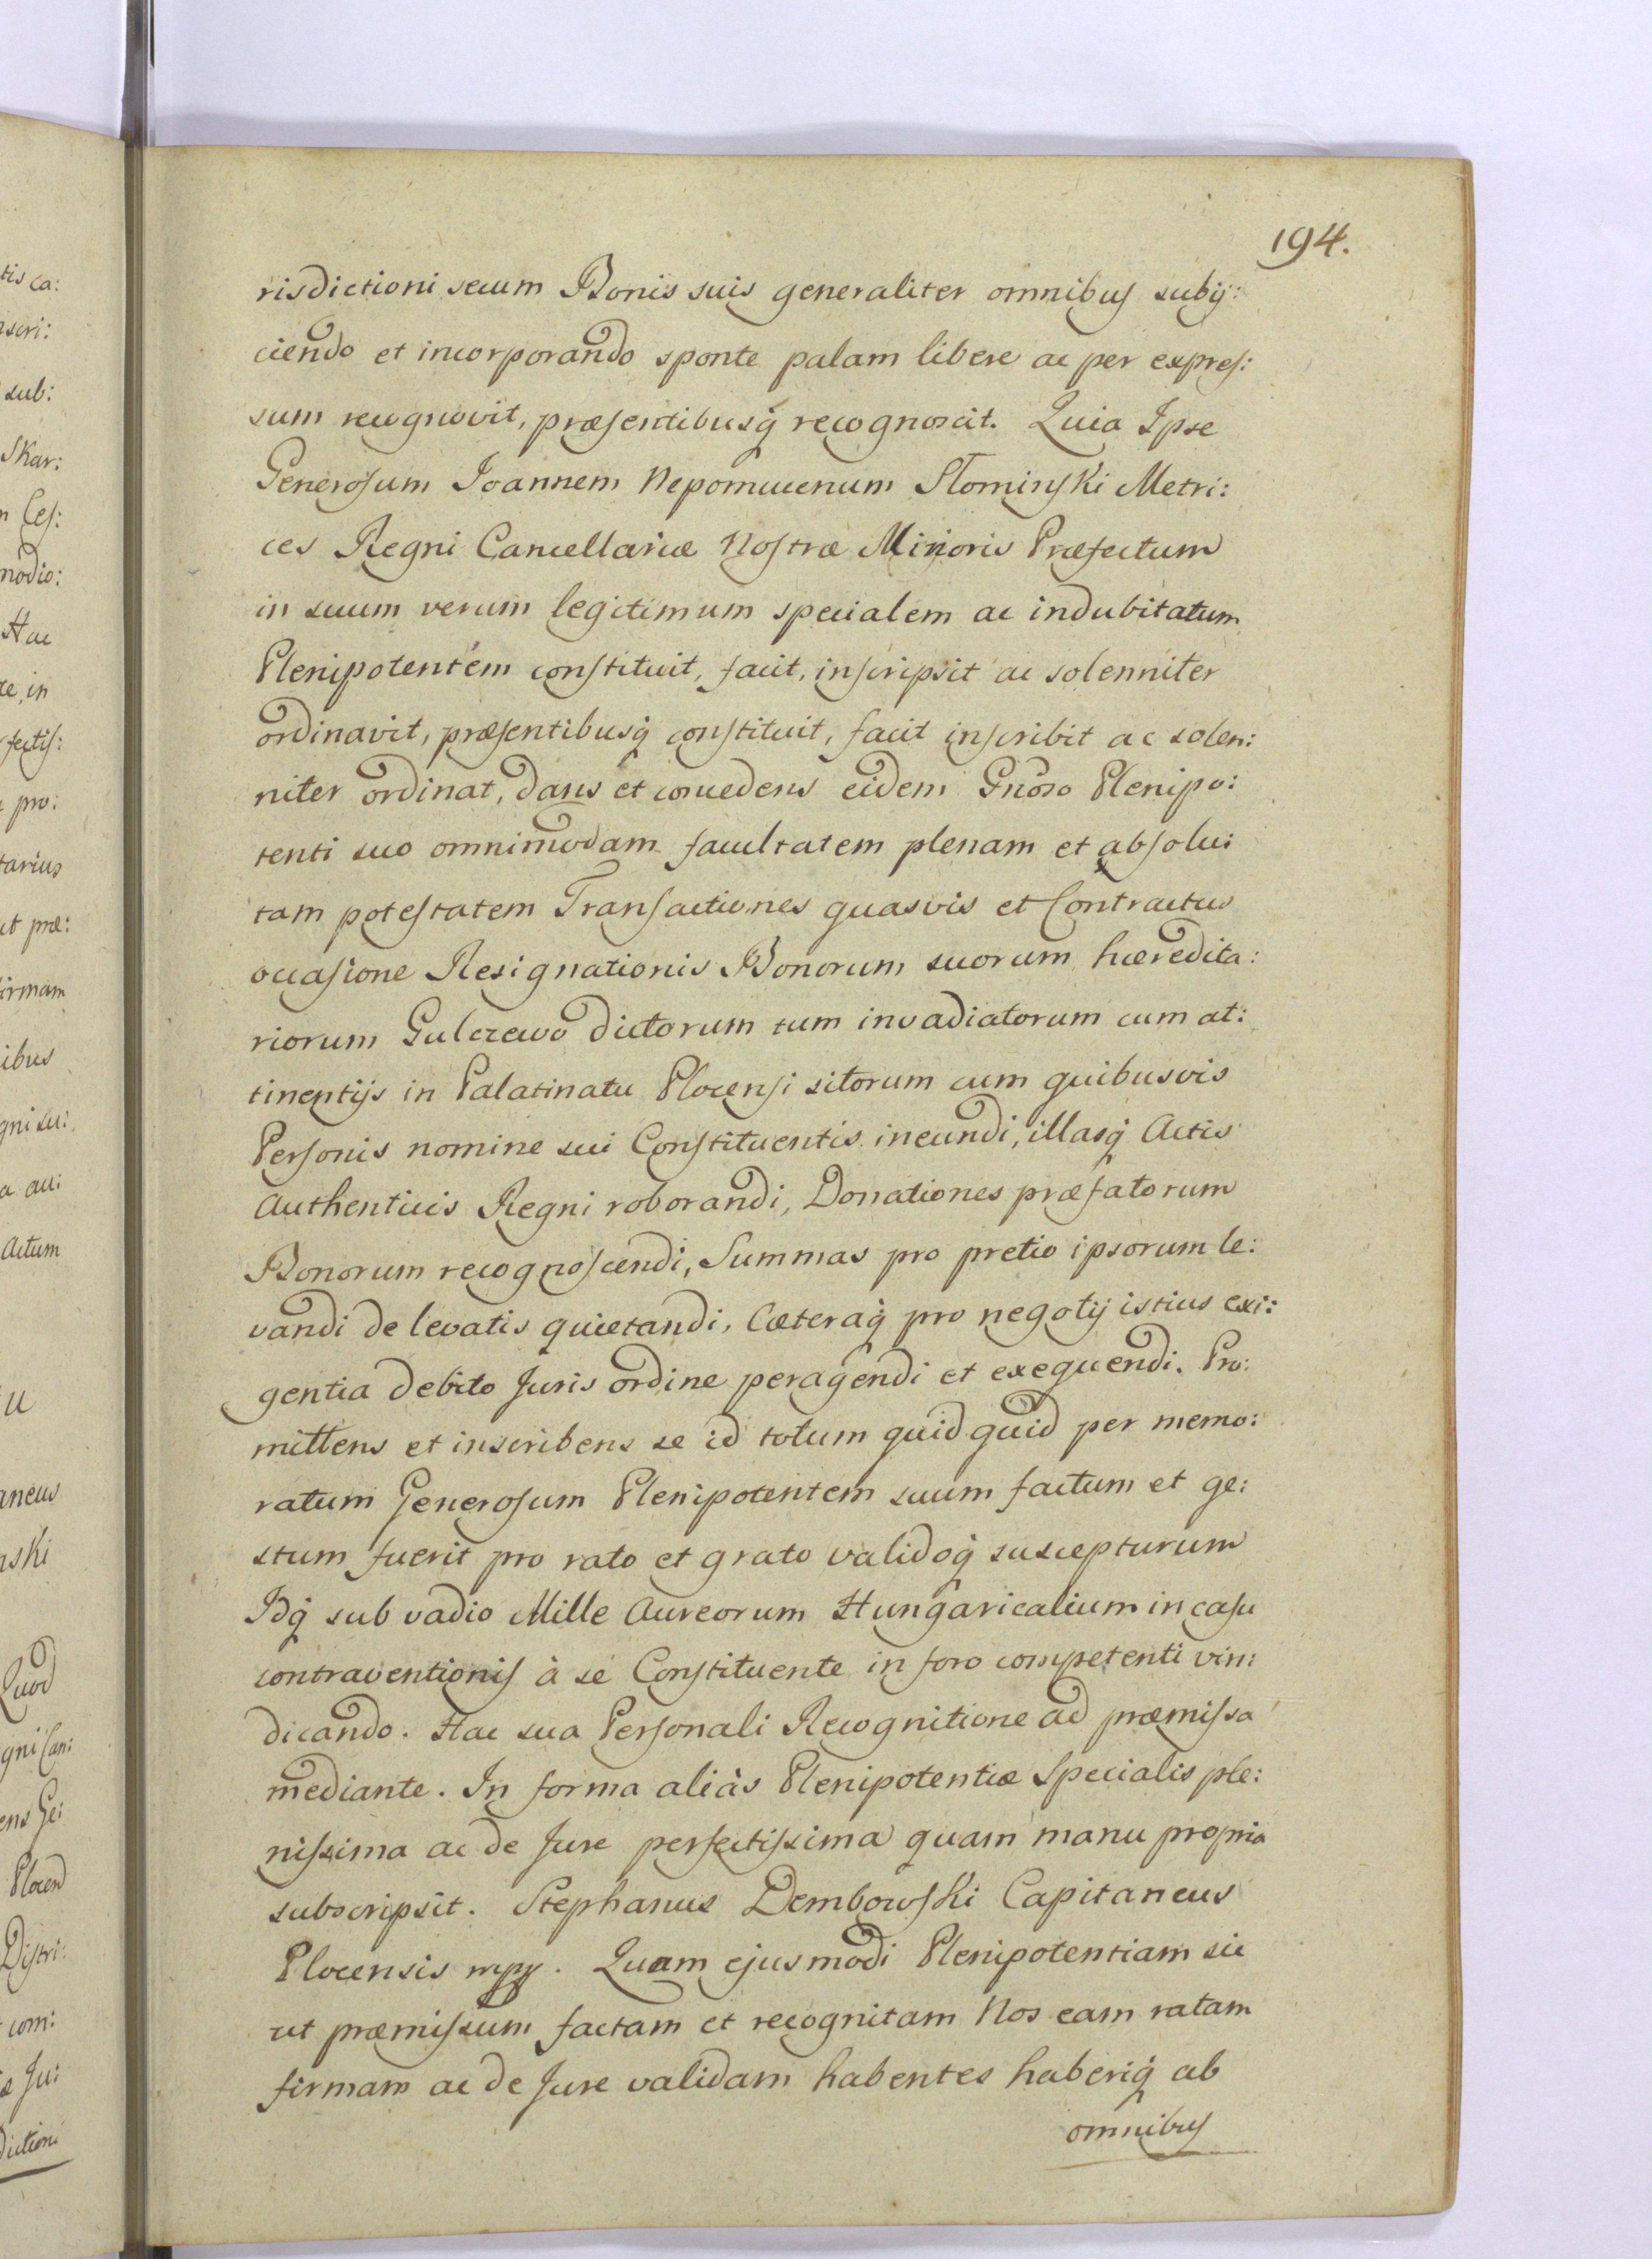 194.
risdictioni secum Bonis suis generaliter omnibus subij:
ciendo et incorporando sponte palam libere ac per expres:
sum recognovit, præsentibusq́ recognoscit. Quia Ipse
Generosum Joannem Nepomucenum Słominski Metri:
ces Regni Cancellariæ Nostræ Minoris Præfectum
in suum verum legitimum specialem ac indubitatum
Plenipotentem constituit, facit, inscripsit ac solenniter
ordinavit, præsentibusq́ constituit, facit inscribit ac solen:
niter ordinat, dans et concedens eidem Gnoso Plenipo:
tenti suo omnimodam facultatem plenam et absolu:
tam potestatem Transactiones quasvis et Contractus
occasione Resignationis Bonorum suorum hæredita:
riorum Gulczewo dictorum tum invadiatorum cum at:
tinentijs in Palatinatu Plocensi sitorum cum quibusvis
Personis nomine sui Constituentis ineundi, illasq́ Actis
Authenticis Regni roborandi, Donationes præfatorum
Bonorum recognoscendi, Summas pro pretio ipsorum le:
vandi de levatis quietandi, Cæteraq́ pro negotij istius exi:
gentia debito Juris ordine peragendi et exequendi. Pro:
mittens et inscribens se id totum quidquid per memo:
ratum Generosum Plenipotentem suum factum et ge:
stum fuerit pro rato et grato validoq́ suscepturum
Idq́ sub vadio Mille Aureorum Hungaricalium in casu
contraventionis à se Constituente in foro competenti vin:
dicando. Hac sua Personali Recognitione ad præmissa
mediante. In forma aliàs Plenipotentiæ Specialis ple:
nissima ac de Jure perfectissima quam manu propria
subscripsit. Stephanus Dembowski Capitaneus
Plocensis mpp. Quam ejusmodi Plenipotentiam sic
ut præmissum factam et recognitam Nos eam ratam
firmam ac de Jure validam habentes haberiq́ ab
omnibus